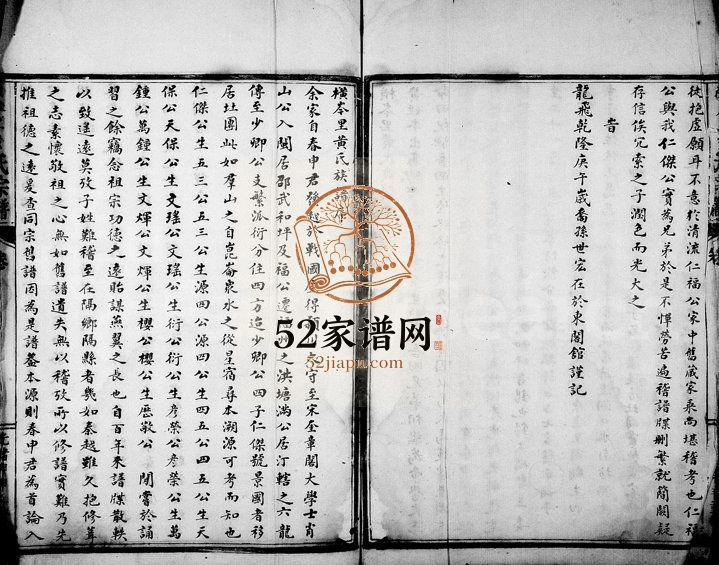 徒抱虛願耳不意於清流仁福公家中舊藏家乘尚堪稽考也仁福
公與我仁傑公實為兄弟於是不憚勞苦遍稽譜牒刪繁就簡闕疑
存信俟冗索之子潤色而光大之
旹
龍飛乾隆庚午歲裔孫世宏在於東閣館謹記
橫岑里黃氏族譜序
余家自春申君後越戰國得守至宋奎章閣大學士肖
山公入閩居邵武和坪及福公遷州之洪塘滿公居汀轄之六龍
傳至少卿公支繁派衍分住四方迨少卿公四子仁傑號景國者移
居社團此如羣山之自崑崙眾水之從星宿尋本溯源可考而知也
仁傑公生五三公五三公生源四公源四公生四五公四五公生天
保公天保公生文瑤公文瑤公生衍公衍公生彥榮公彥榮公生萬
鍾公萬鍾公生文煇公文煇公生櫻公櫻公生歷敬公 閒嘗於誦
習之餘竊念祖宗功德之遠貽謀燕翼之長也自百年來譜牒散軼
以致遙遠莫攷子姓難稽至在隔鄉隔縣者幾如秦越雖久抱修葺
之志素懷敬祖之心無如舊譜遺失無以稽攷所以修譜實難乃先
推祖德之遠爰查同宗舊譜因為是譜蓋本源則春申君為首論入
52家谱网
52jiapu.com